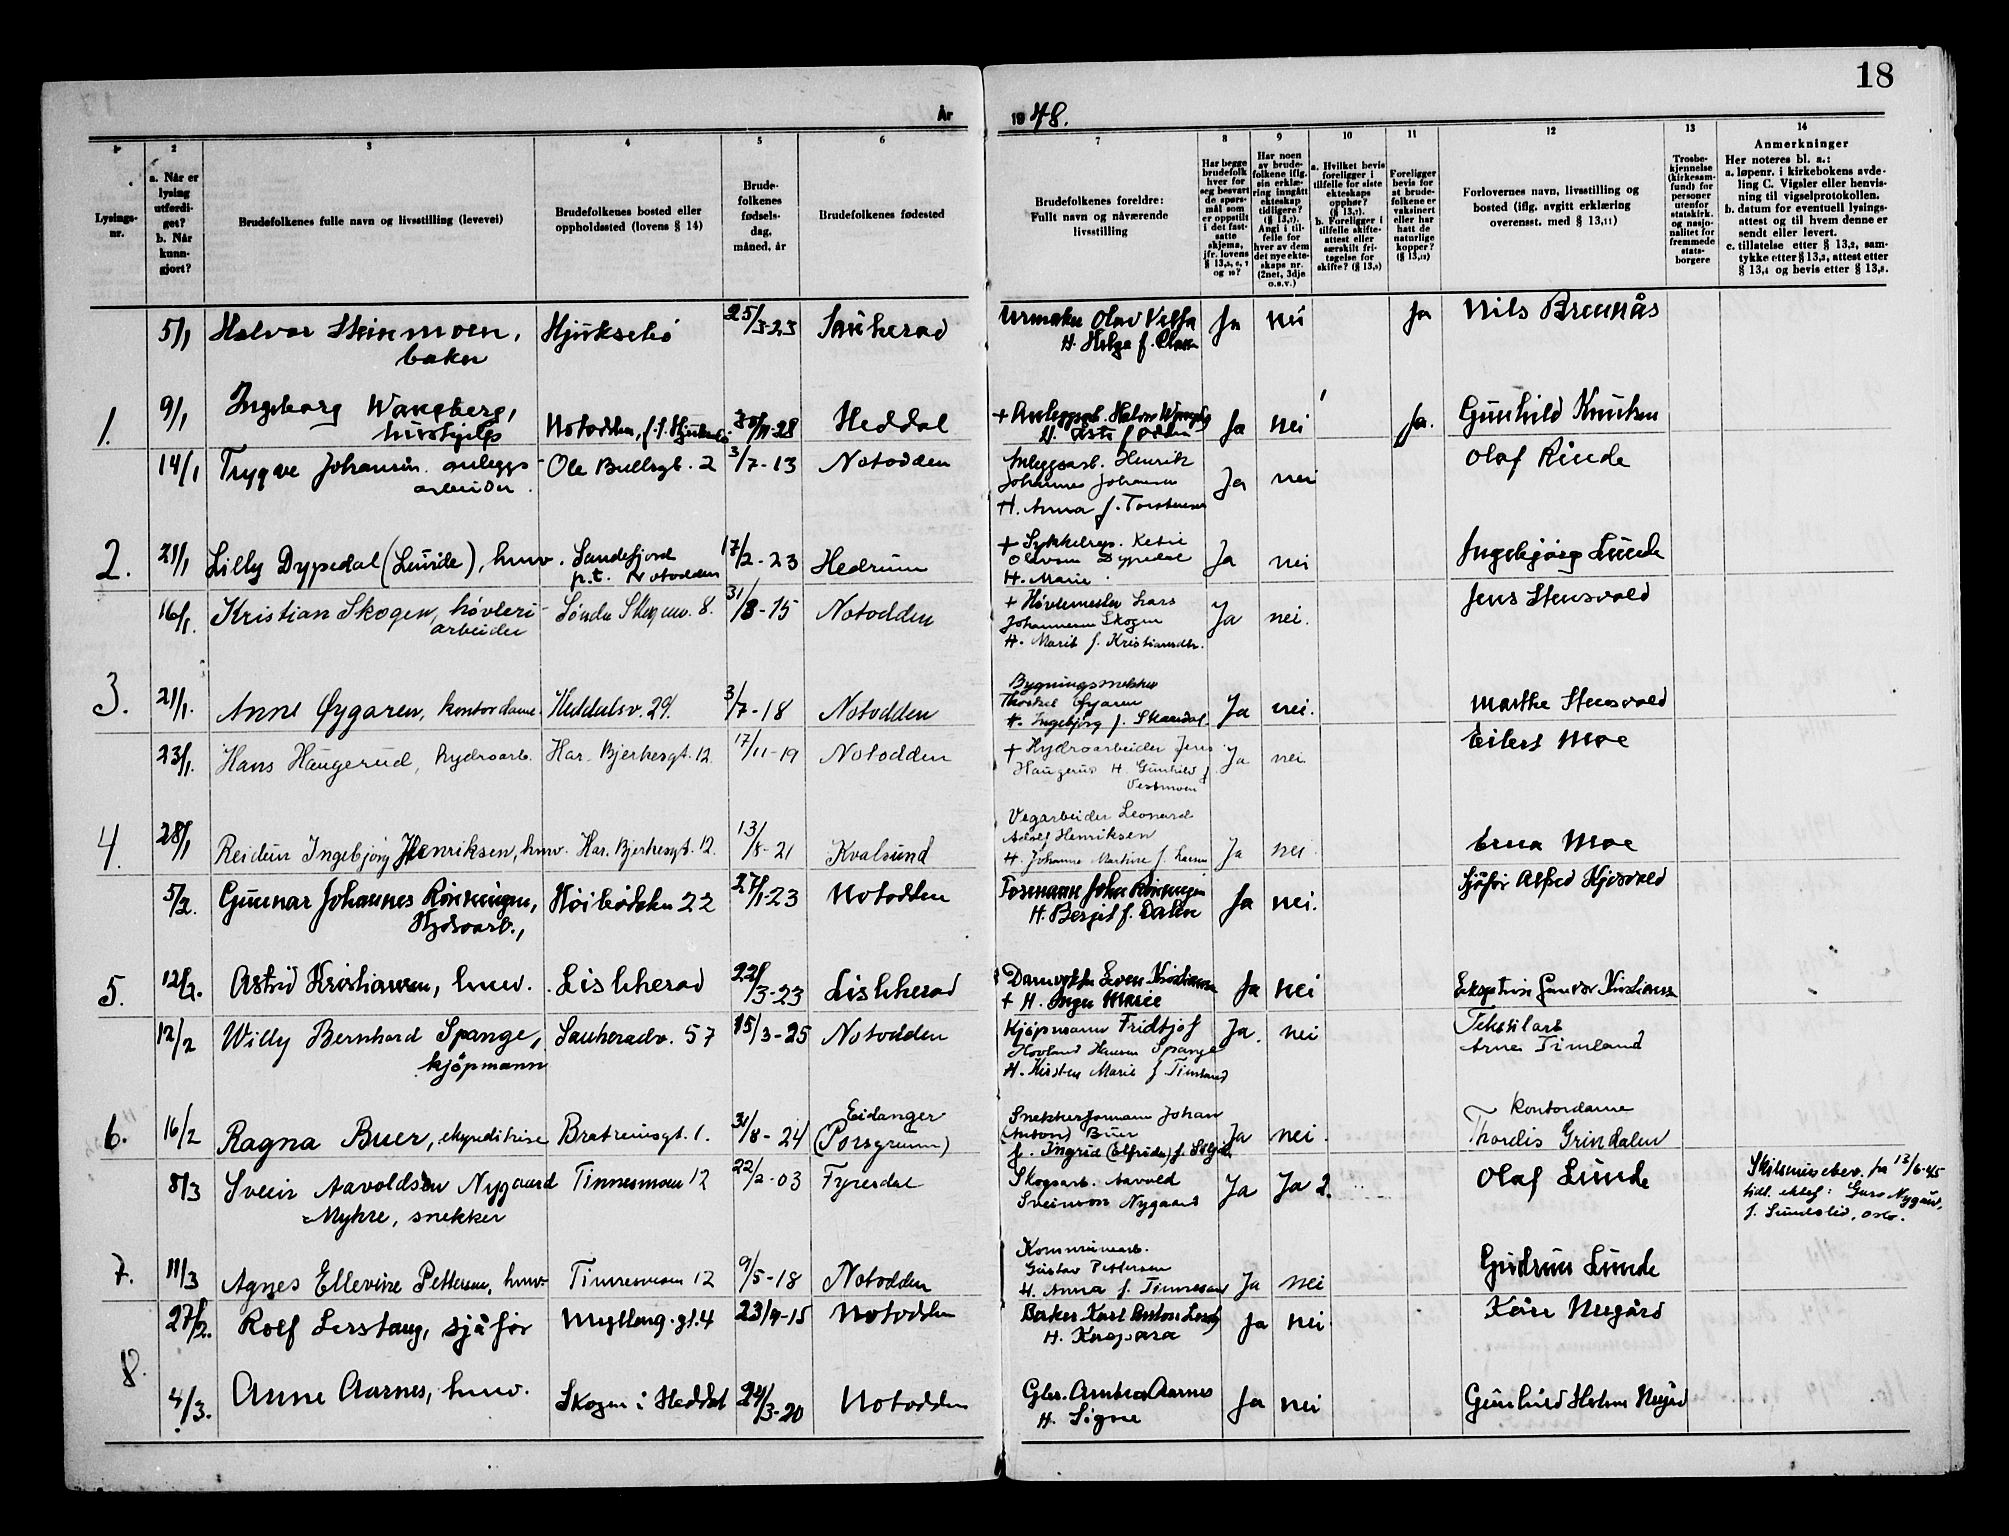 18
År 1948.
1
2
3
4
5
6
7
8
9
10
11
12
13
14
Lysings-
nr.
a. Når er
lysing
utferdi-
get?
b. Når
kunn-
gjort?
Brudefolkenes fulle navn og livsstilling (levevei)
Brudefolkenes bosted eller
oppholdssted (lovens § 14)
Brude-
folkenes
fødsels-
dag,
måned, år
Brudefolkenes fødested
Brudefolkenes foreldre:
Fullt navn og nåværende
livsstilling
Har begge
brudefolk
hver for
seg besvart
de spørs-
mål som
er oppstilt
i det fast-
satte
skjema,
jfr. lovens
Har noen
av brude-
folkene iflg.
sin erklæ-
ring inngått
ekteskap
tidligere?
(§ 13,7).
Angi i til-
felle for
hver av dem
det nye ekte-
skaps nr.
(2net, 3dje
o.s.v.)
a. Hvilket bevis
foreligger i
tilfelle for siste
ekteskaps
opphør?
(§ 13,7).
b. Foreligger i
tilfelle skifte-
attest eller
særskilt fri-
tagelse for
skifte? (§ 13,8)
Foreligger
bevis for
at brude-
folkene er
vaksinert
eller har
hatt de
naturlige
kopper?
Forlovernes navn, livsstilling og
bosted (iflg. avgitt erklæring
overensst. med § 13,11)
Trosbe-
kjennelse
(kirkesam-
fund) for
personer
utenfor
statskirk.
og nasjo-
nalitet for
fremmede
stats-
borgere
Anmerkninger
Her noteres bl. a.:
a. løpenr. i kirkebokens avde-
ling C. Vigsler eller henvis-
ning til vigselprotokollen.
b. datum for eventuell lysings-
attest og til hvem denne er
sendt eller levert.
c. tillatelse etter § 13,2, sam-
tykke etter § 13,3, attest etter
§ 13,4 og bevis etter § 13,8.
5/1 Halvor Steinmoen, Hjuksebø 25/3-23 Sauherad Urmaker Olav Ja nei Ja Nils Brennås
baker H. Helga f.
1. 9/1 Ingeborg Wangberg, Notodden, 30/11-28 Heddal + Anleggsarb. Halvor Ja nei Ja. Gunhild Knutsen
hushjelp
14/1 Trygve Johansen anleggs- Ole Bullsgt. 2 3/7-13 Notodden Anleggsarb. Henrik Ja nei Olaf Rinde
arbeider. Johannes Johansen
H. Anna f. Torstensen
2. 21/1 Lilly Dypedal (Lunde), husv. Sandefjord 17/2-23 Hedrum + Ja nei Ingebjørg Lunde
p.t. Notodden Dypedal
H. Marie
16/1. Kristian Skogen, høvleri- Søndre 8. 31/8-15 Notodden + Høvlemester Lars Ja nei. Jens Stensvold
arbeider Johannessen Skogen
H. Marit f. Kristiansdtr.
3. 21/1. Anne Øygaren, kontordame. Heddalsv. 29. 3/7-18 Notodden Bygningsmester Ja nei. Marthe Stensvold
H. Ingebjørg f.
23/1. Hans Haugerud, hydroarb. Har. Bjerkesgt. 12. 17/11-19 Notodden + Hydroarbeider Jens Ja nei. Eilert Moe
Haugerud H. Gunhild f.
Vestmoen
4. 28/1 Reidun Ingebjørg Henriksen, husv. Har. Bjerkesgt. 12. 13/8-21 Kvalsund Vegarbeider Leonard Ja nei Erna Moe
Adolf Henriksen
H. Johanne Martine f.
5/2. Gunnar Johannes Rønningen, 22 27/1-23 Notodden Formann Johan Rønningen Ja nei. Sjåfør Alfred
Hydroarb., H. Bergit f. Dalen
5. 12/2. Astrid Kristiansen, husv. Lisleherad 22/3-23 Lisleherad Kristiansen Ja nei Gunvor Kristiansen
+ H. Inga Marie
12/2 Willy Bernhard Spange, Sauheradv. 57 15/3-25 Notodden Kjøpmann Fridtjof Ja. nei Tekstilarb.
kjøpmann Hovland Hansen Spange Arne Timland
H. Kirsten Marie f Timland
6. 16/2 Ragna Buer, ekspeditrise Bratreinsgt. 1. 31/8-24 Eidanger (Porsgrunn) Snekkerformann Johan Ja nei. kontordame
(Anton) Buer Thordis Grindalen
Ingrid (Elfrida) f.
8/3 Svein Aavoldsen Nygaard Tinnesmoen 12 22/2-03 Fyresdal Skogsarb. Aavold Ja Ja 2. Olaf Lunde Skilsmissebev. fra 12/6-45
=Myhre, snekker Sveinson Nygaard tidl. ektef: Guro Nygård,
f. Sundslid, Oslo.
7. 11/3 Agnes Ellevine Pettersen, husv. Tinnesmoen 12 9/5-18 Notodden Kommunearb. Ja nei Gudrun Lunde
Gustav Pettersen
H. Anna f. Tinnesand
27/2. Rolf Lerstang, sjåfør Myllarg.gt. 4 23/9-15 Notodden Baker Karl Anton Ja nei Kåre Nugård
H. Kaspara
8. 4/3. Anne Aarnes, husv. Skogen i Heddal 24/3-20 Notodden Aarnes Ja nei Gunhild Nugård
H. Signe